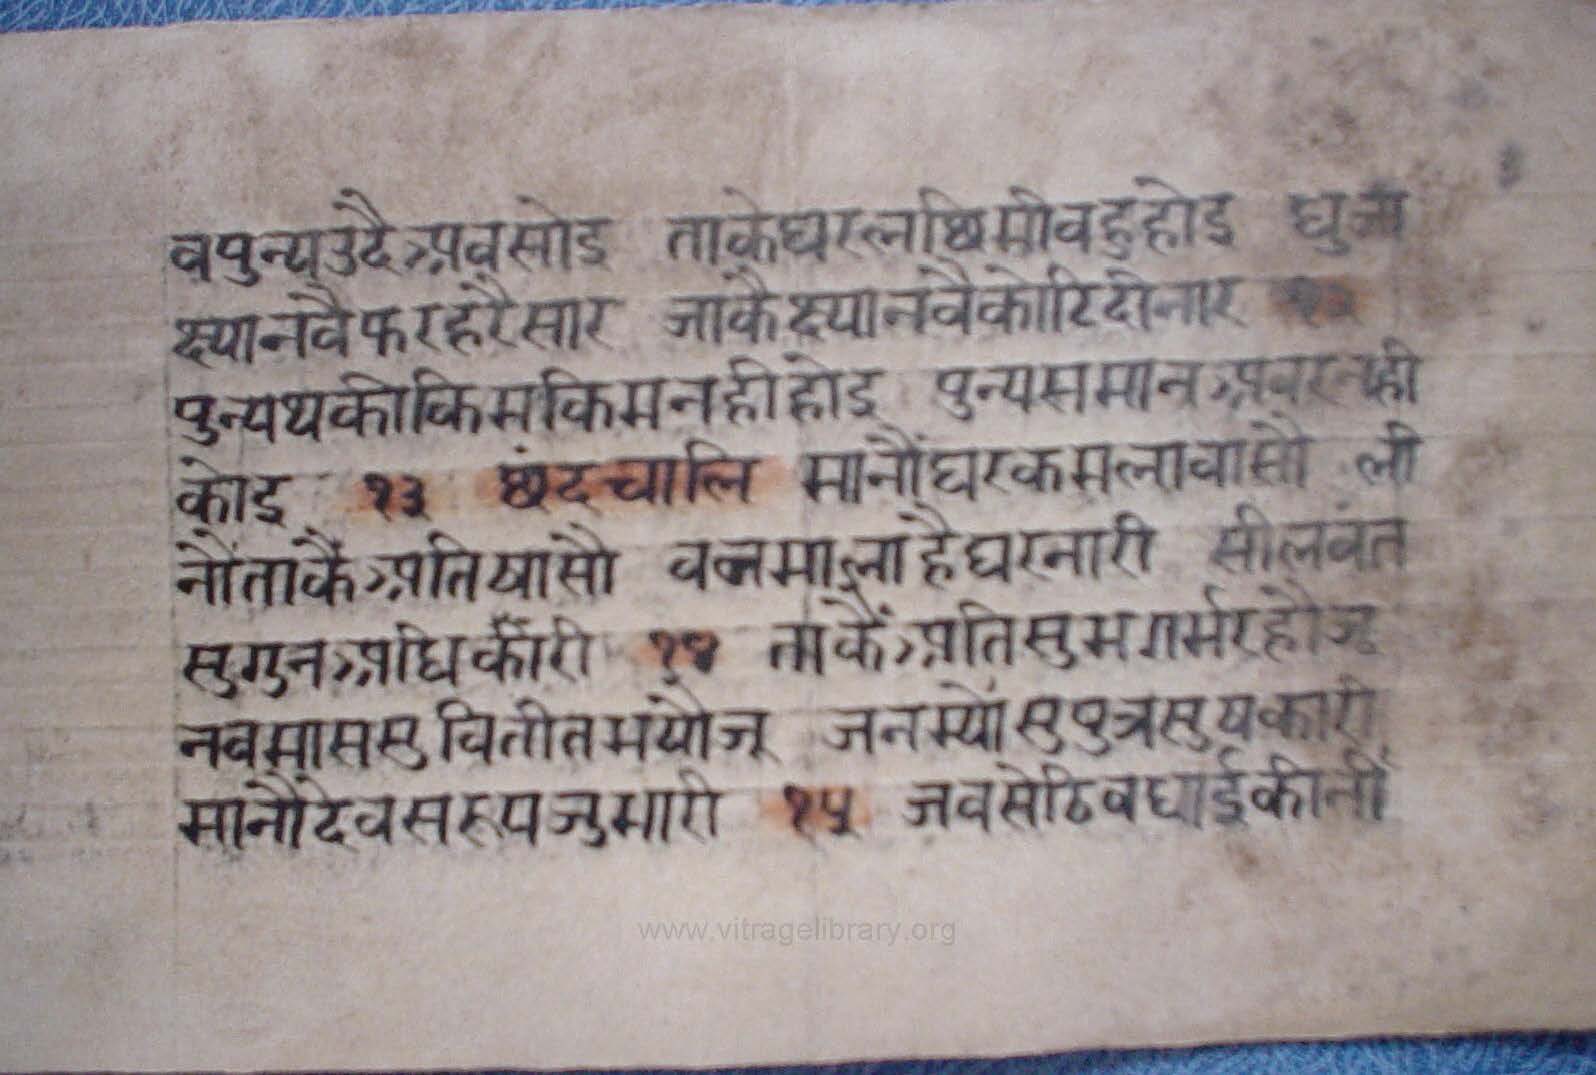 वपुन्यउदैअवसोइ ताकेघरलछिमीवहुहोइ धुजा
छ्यानवैफरहरैसार जाकैछ्यानवैकोटिदीनार १२
पुन्यथकीकिमकिमनहीहोइ पुन्यसमानअवरनही
कोइ १३ छंदचालि मानौंघरकमलावासौ ली
नौंताकैंअतिषासौ वज्रमालाहैघरनारी सीलवंत
सुगुनअधिकारी १४ ताकैंअतिसुभगर्भरहौजु
नवमाससुवितीतभयौजू जनम्यौंसुपुत्रसुषकारी
मानौंदेवसरूपजुभारी १५ जवसेठिवधाईकीनीं
www.vitragelibrary.org